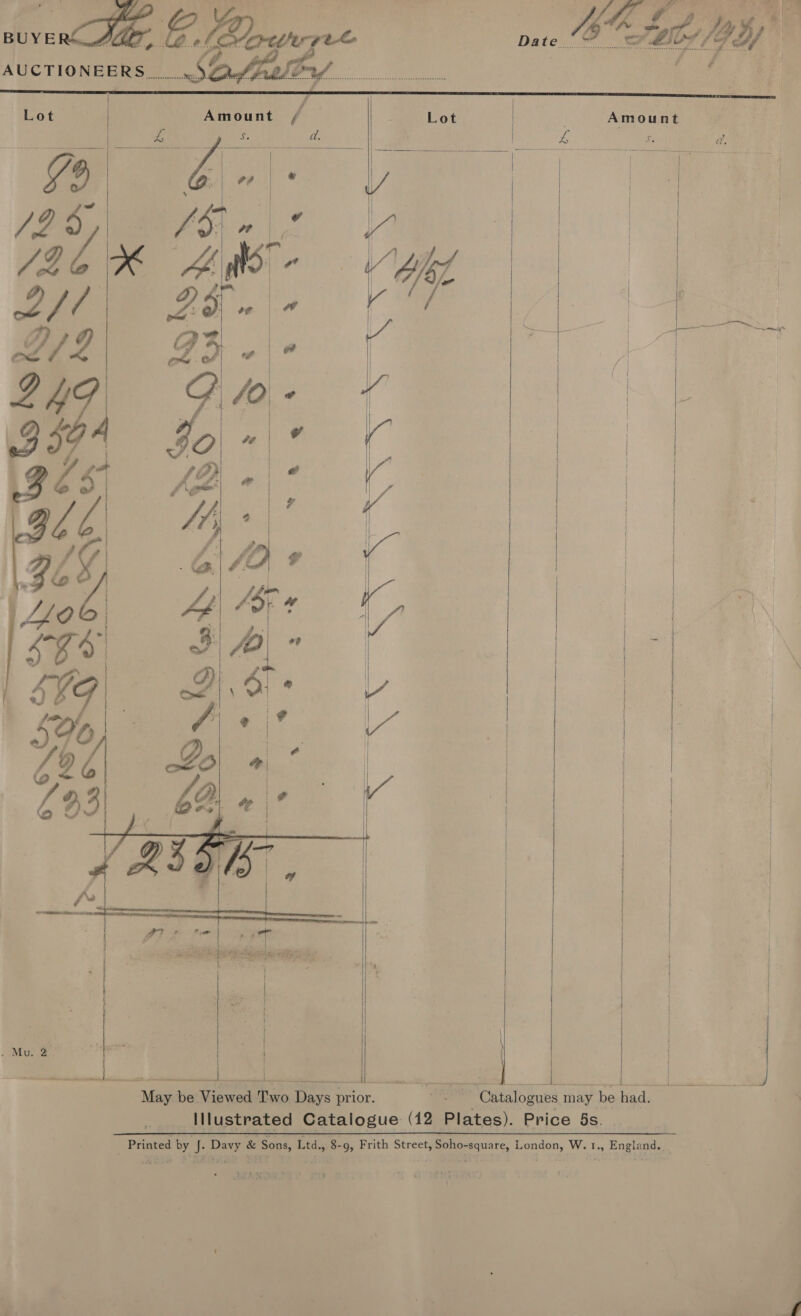 BUYER
Date
AUCTIONEERS Sotheby
Lot Amount Lot Amount
£ s. d. £ s. d.
99 6 " "
125 15 " "
126 x 4 15 "
211 25 " "
212 23 " "
249 9 10 "
354A 30 " "
365 12 " "
366 11 " "
368 6 10 "
406 4 15 "
585 3 10 "
589 2 5 "
596 1 " "
626 20 " "
633 62 " "
Mu. 2
May be Viewed Two Days prior. Catalogues may be had.
Illustrated Catalogue (12 Plates). Price 5s.
Printed by J. Davy & Sons, Ltd., 8-9, Frith Street, Soho-square, London, W. 1., England.